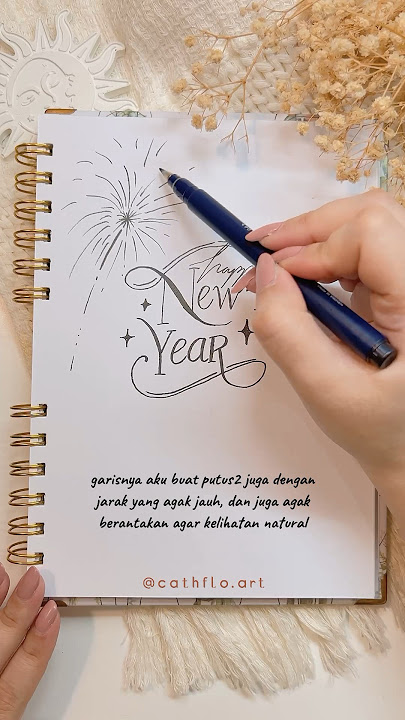 happy
New
Year
garisnya aku buat putus2 juga dengan
jarak yang agak jauh, dan juga agak
berantakan agar kelihatan natural
@cathflo.art